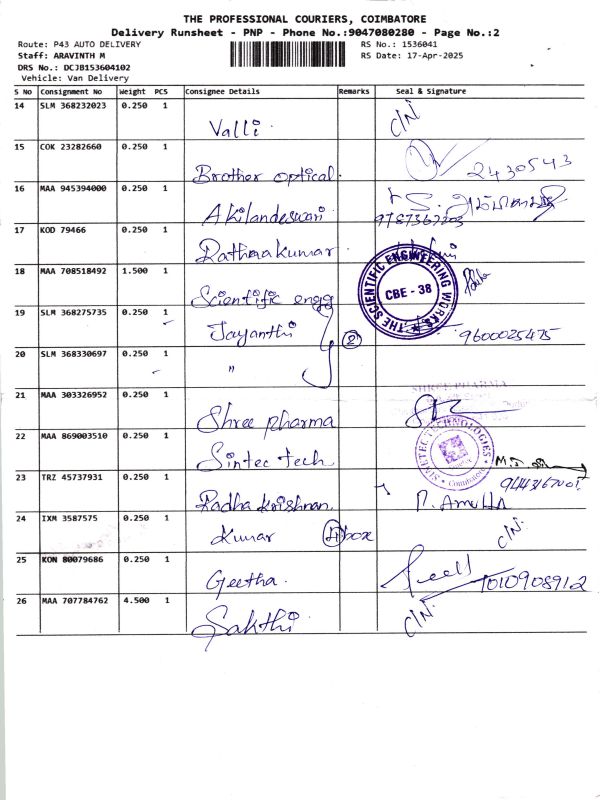 THE PROFESSIONAL COURIERS, COIMBATORE
Delivery Runsheet - PNP - Phone No.:9047080280 - Page No.:2
Route: P43 AUTO DELIVERY
RS No.: 1536041
Staff: ARAVINTH M
RS Date: 17-Apr-2025
DRS No.: DCJB153604102
Vehicle: Van Delivery
S No Consignment No Weight PCS Consignee Details Remarks Seal & Signature
14 SLM 368232023 0.250 1 Valli C/N
15 COK 23282660 0.250 1 Brother optical. 2430543
16 MAA 945394000 0.250 1 Akilandeswari 9787367203
17 KOD 79466 0.250 1 Rathnakumar
18 MAA 708518492 1.500 1 Scientific engg
THE SCIENTIFIC ENGINEERING WORKS
CBE - 38
19 SLM 368275735 0.250 1 Jayanthi 2 9600025475
20 SLM 368330697 0.250 1 "
21 MAA 303326952 0.250 1 Shree pharma
SHREE PHARMA
22 MAA 869003510 0.250 1 Sintec tech
TECHNOLOGIES
Coimbatore
23 TRZ 45737931 0.250 1 Radha krishnan.
24 IXM 3587575 0.250 1 Kumar box C/N.
25 KON 80079686 0.250 1 Geetha. 1010908912
26 MAA 707784762 4.500 1 Sakthi. C/N.